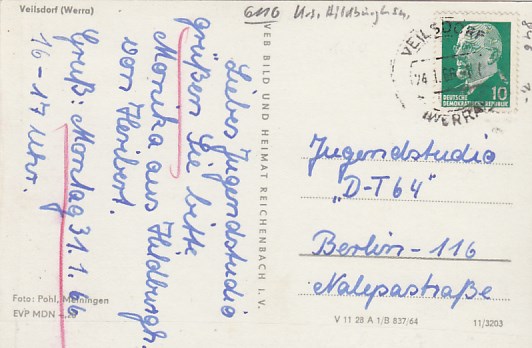 Veilsdorf (Werra)
6110 Krs. Hildburghsn.
Liebes Jugendstudio
grüßen Sie bitte
Monika aus Hildburgh.
von Heribert.
Gruß: Montag 31.1.66
16-17 Uhr.
Foto: Pohl, Meiningen
EVP MDN
VEB BILD UND HEIMAT REICHENBACH I. V.
VEILSDORF
(WERRA)
DEUTSCHE
DEMOKRATISCHE REPUBLIK
10
Jugendstudio
„D-T 64"
Berlin-116
Nalepastraße
V 11 28 A 1/B 837/64
11/3203